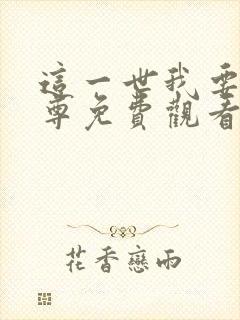 這一世我要
尊免費觀看
花香戀雨